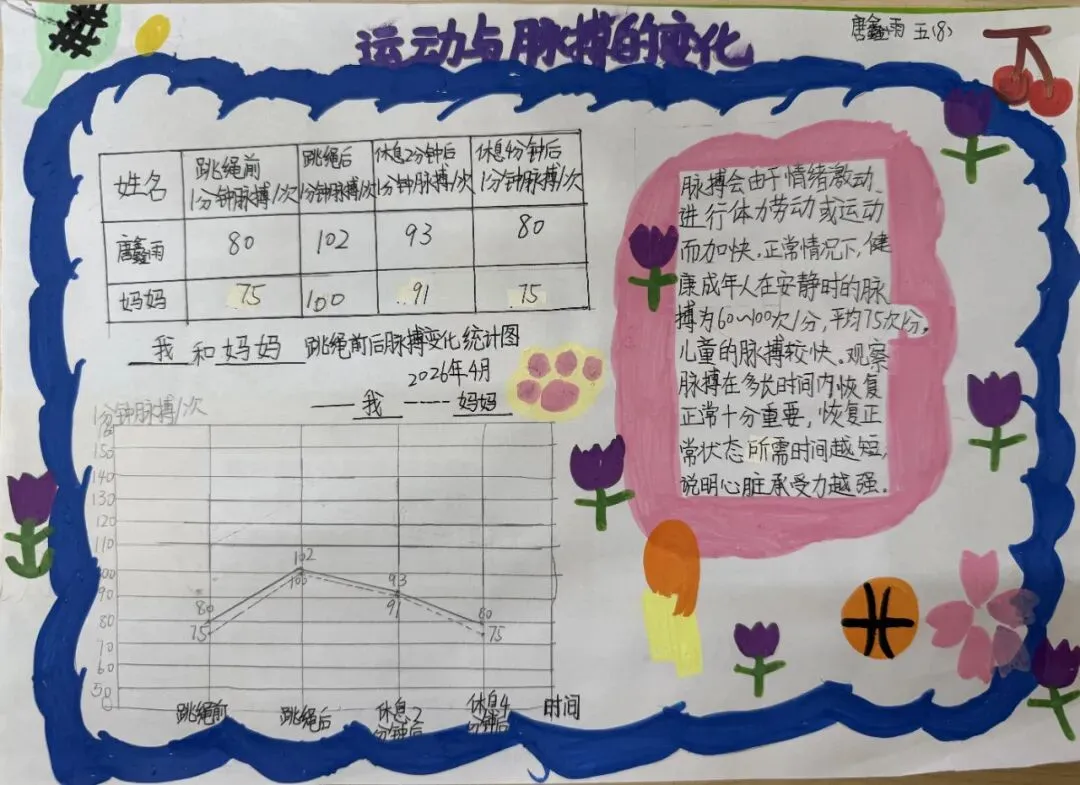 运动与脉搏的变化
唐鑫雨 五(8)
姓名 跳绳前1分钟脉搏/次 跳绳后1分钟脉搏/次 休息2分钟后1分钟脉搏/次 休息4分钟后1分钟脉搏/次
唐鑫雨 80 102 93 80
妈妈 75 100 91 75
我和妈妈 跳绳前后脉搏变化统计图
2026年4月
——我 ----妈妈
1分钟脉搏/次
150
140
130
120
110
100
90
80
70
60
50
0
102
100
93
91
80
75
80
75
跳绳前 跳绳后 休息2分钟后 休息4分钟后 时间
脉搏会由于情绪激动、
进行体力劳动或运动
而加快。正常情况下,健
康成年人在安静时的脉
搏为60~100次/分,平均75次/分。
儿童的脉搏较快。观察
脉搏在多长时间内恢复
正常十分重要,恢复正
常状态所需时间越短,
说明心脏承受力越强。